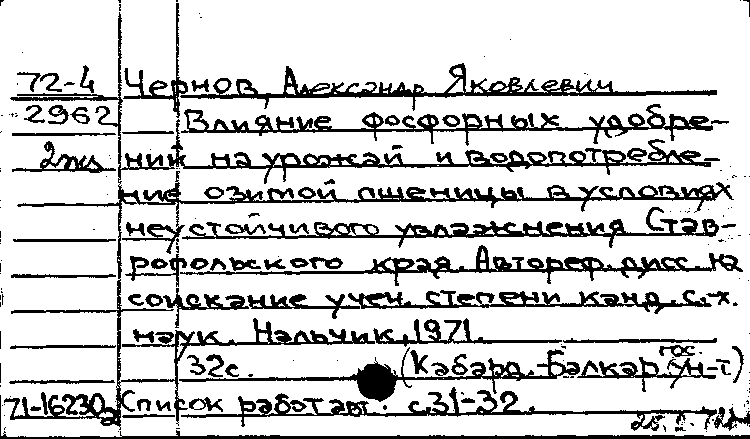 72-4 Чернов, Александр Яковлевич
2962 Влияние фосфорных удобре-
2экз ний на урожай и водопотребле-
ние озимой пшеницы в условиях
неустойчивого увлажнения Став-
ропольского края. Автореф. дисс. на
соискание учен. степени канд. с.-х.
наук. Нальчик, 1971.
32с. (Кабард.-Балкар. гос. ун-т)
71-16230 Список работ авт.: с.31-32.